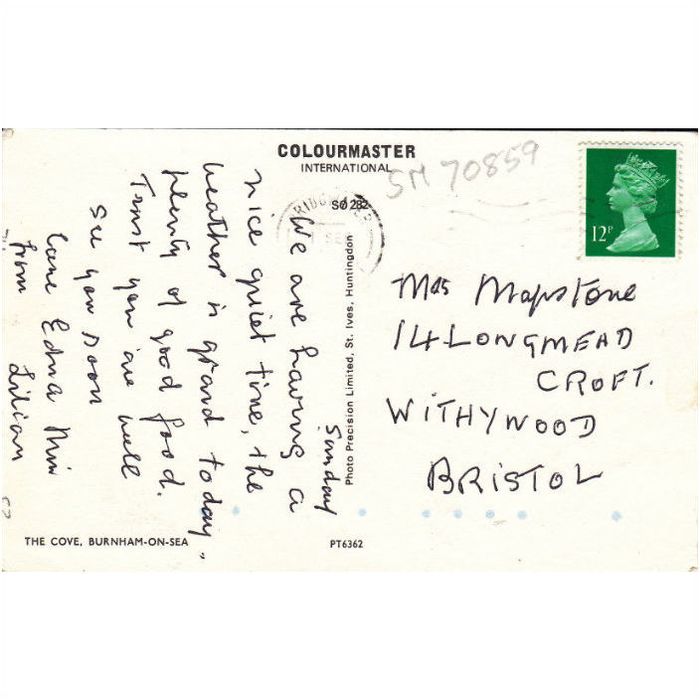 COLOURMASTER
INTERNATIONAL
SM 70859
12P
Sunday
We are having a
nice quiet time, the
weather is grand today,
plenty of good food.
Trust you are well
see you soon
love Edna
from Lilian
Photo Precision Limited, St. Ives, Huntingdon
Mrs Mapstone
14 LONGMEAD
CROFT.
WITHYWOOD
BRISTOL
THE COVE, BURNHAM-ON-SEA
PT6362